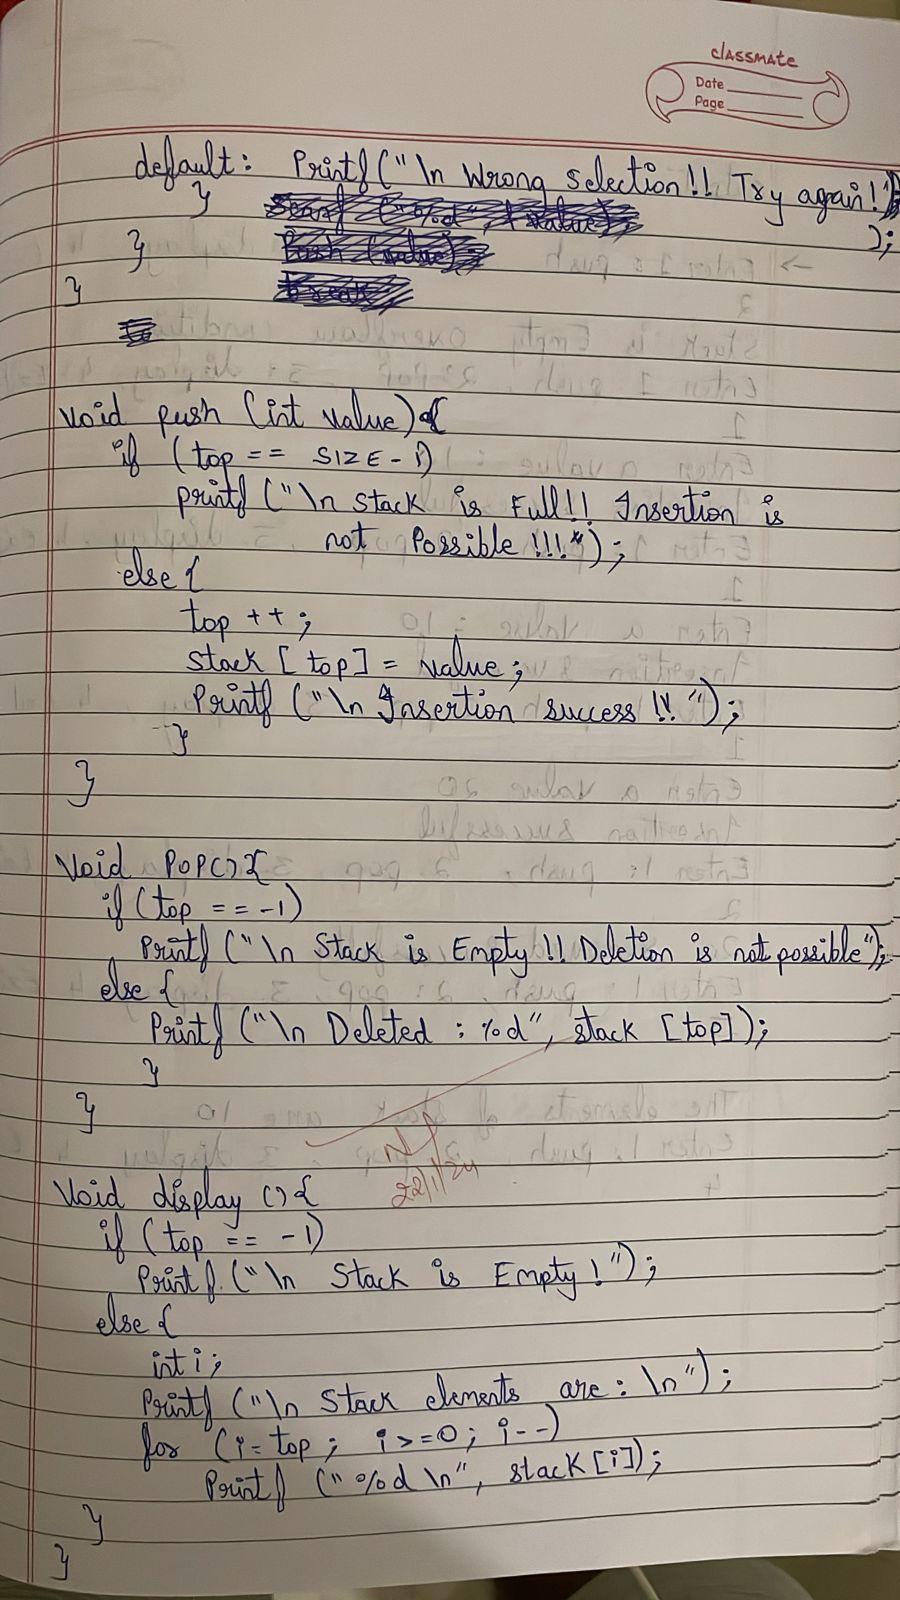 classmate
Date
Page
default: Printf("\n Wrong Selection!! Try again!"
);
}
}
}
void push (int value){
if (top == SIZE-1)
printf ("\n Stack is Full!! Insertion is
not Possible !!!");
else {
top ++;
stack [top] = value;
Printf ("\n Insertion success !!");
}
}
Void POP(){
if (top == -1)
Printf ("\n Stack is Empty !! Deletion is not possible");
else {
Printf ("\n Deleted : %d", stack [top]);
}
}
22/1/24
Void display (){
if (top == -1)
Printf ("\n Stack is Empty !");
else {
int i;
Printf ("\n Stack elements are : \n");
for (i=top; i>=0; i--)
Printf ("%d \n", stack [i]);
}
}